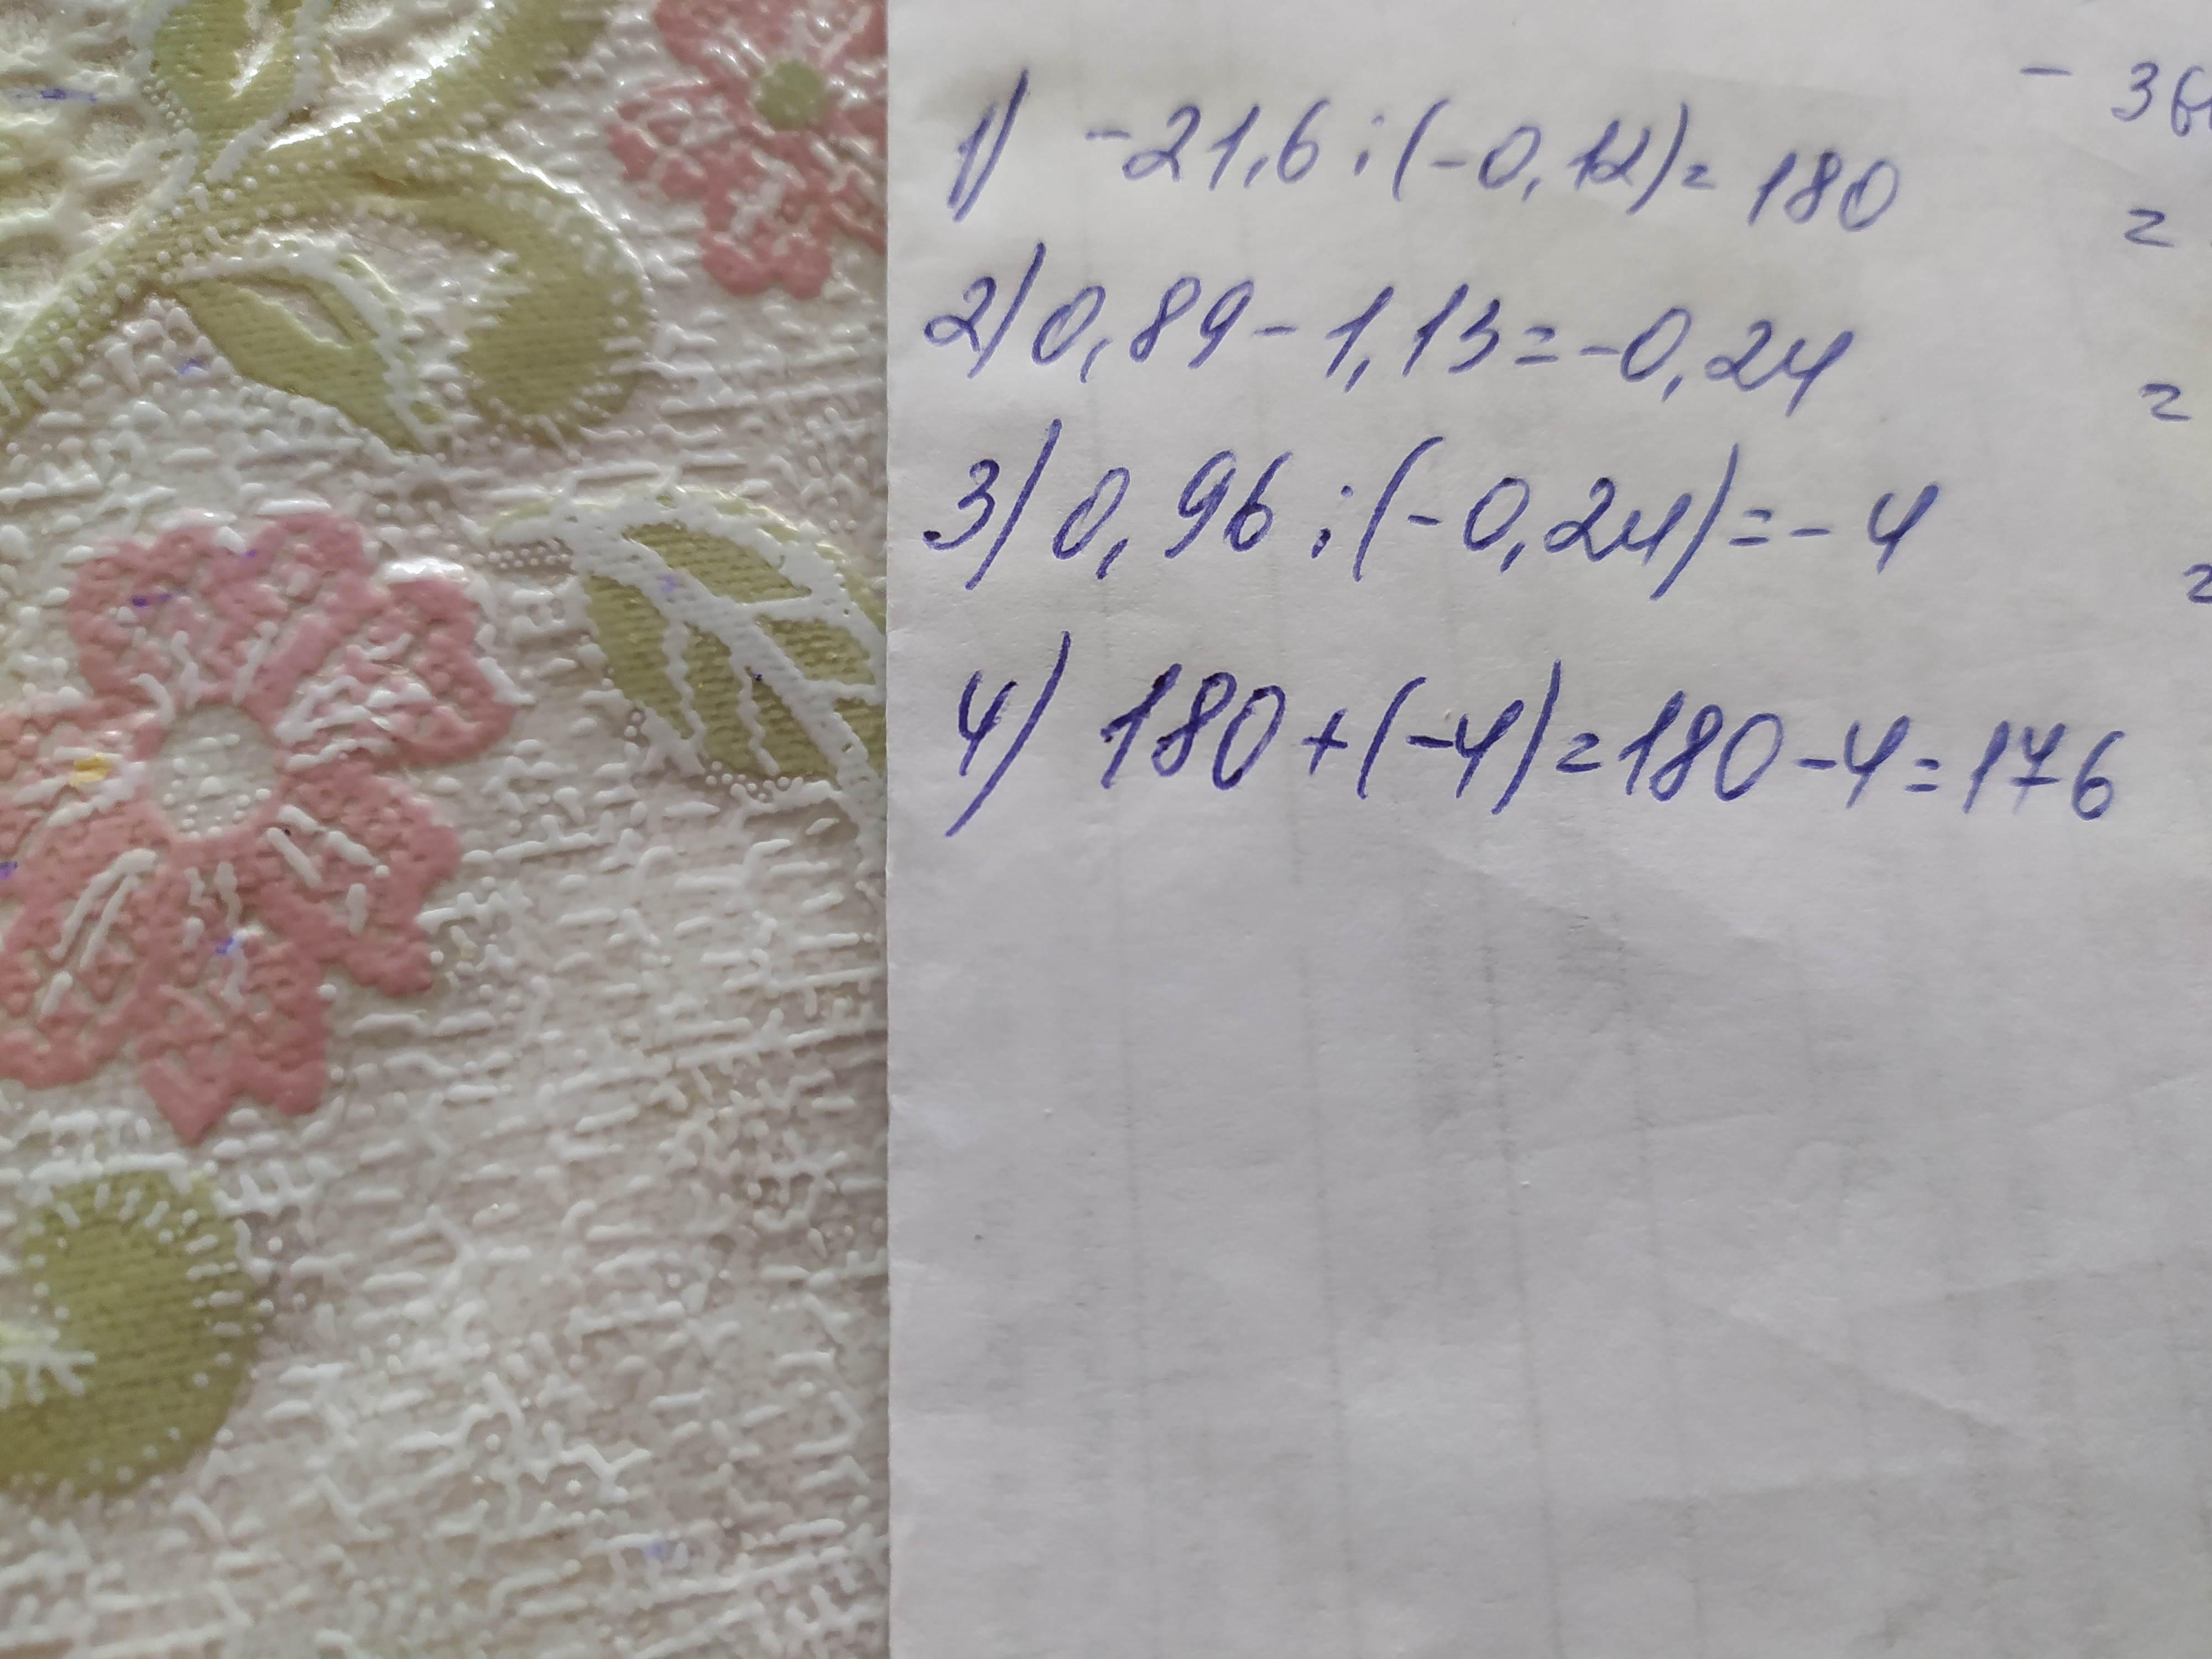 1) -21,6:(-0,12)=180
2) 0,89-1,13=-0,24
3) 0,96:(-0,24)=-4
4) 180+(-4)=180-4=176
- 3
=
=
=